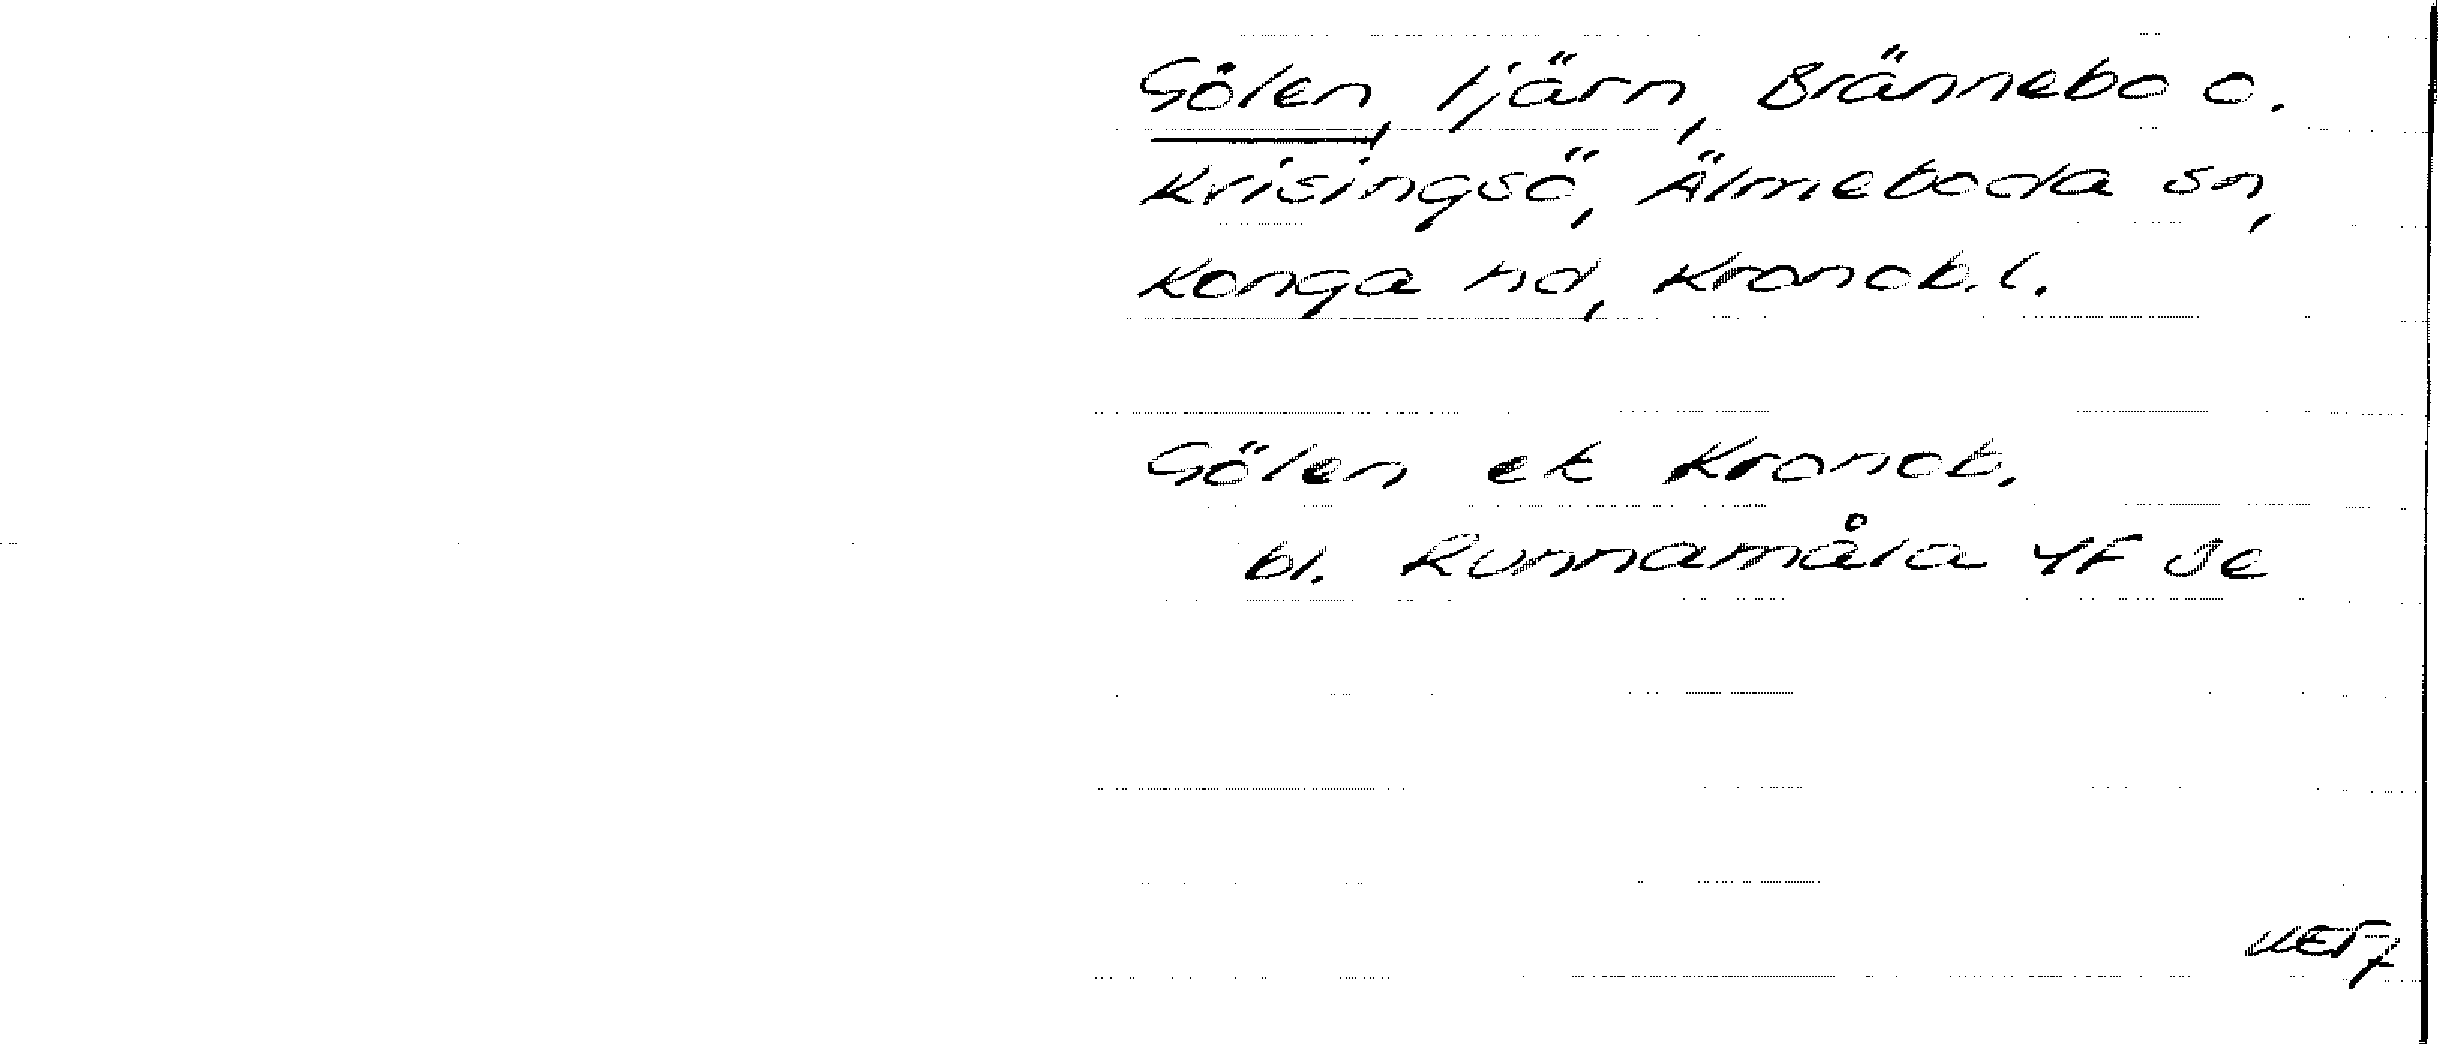 Gölen, tjärn, Brännebo o.
Krisingsö, Älmeboda sn,
Konga hd, Kronob. l.
Gölen ek Kronob.
bl. Runnamåla 4F 3e